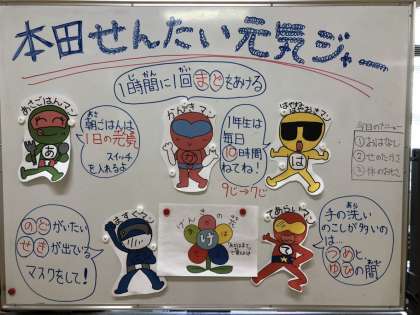 本田せんたい元気ジャー
1時間に1回まどをあける
あさごはんマン
朝ごはんは
1日の元気
スイッチ
を入れるよ
あ
かんきマン
か
1年生は
毎日
10時間
ねてね!
9じ→7じ
は
今日のメニュー
①おはなし
②せのたかさ
③体のおもさ
のどがいたい
せきが出ている
マスクをして!
ますくマン
げんきの
け
てあらいマン
手の洗い
のこしが多いのは…
つめと、
ゆびの間